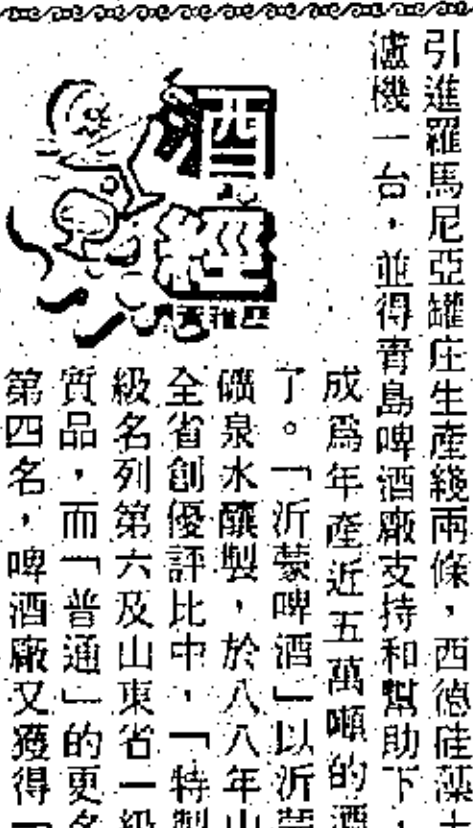 引進羅馬尼亞罐庄生產綫兩條，西德硅藻土
濾機一台，並得青島啤酒廠支持和幫助下，
酒經
成爲年產近五萬噸的酒
了。「沂蒙啤酒」以沂蒙
礦泉水釀製，於八八年山
全省創優評比中，「特製
級名列第六及山東省一級
質品，而「普通」的更名
第四名，啤酒廠又獲得「